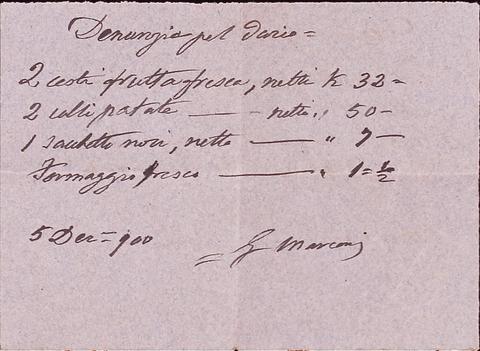 Denunzia pel dazio =
2 cesti frutta fresca, netti K 32 =
2 colli patate — - netti " 50 -
1 sacchetto noci, netto — " 7 —
Formaggio fresco — " 1 = 1/2
5 Dec = 900
= G Marconi